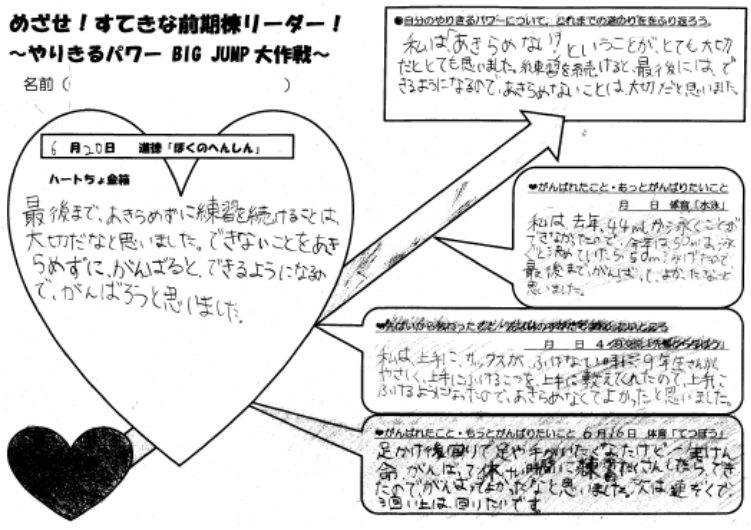 めざせ！すてきな前期棟リーダー！
〜やりきるパワー BIG JUMP 大作戦〜
名前（　　　　　　　　　　）
6月20日　道徳「ぼくのへんしん」
ハートちょ金箱
最後まで、あきらめずに練習を続けることは、
大切だなと思いました。できないことをあき
らめずに、がんばると、できるようになるの
で、がんばろうと思いました。
●自分のやりきるパワーについて、これまでの道のりををふり返ろう。
私は「あきらめない!」ということが、とても大切
だととても思いました。練習を続けると、最後には、で
きるようになるので、あきらめないことは、大切だと思いました。
♥がんばれたこと・もっとがんばりたいこと
月　日　体育「水泳」
私は、去年、44mしか泳ぐことが
できなかったので、今年は50mは、泳
ぐと決めていたら、50m泳げたので
最後まで、がんばって、よかったなと
思いました。
月　日
私は、上手に、サックスが、ふけない時に9年生さんが、
やさしく、上手にふけるこつを、上手に教えてくれたので、上手に
ふけるようになったので、あきらめなくてよかったと思いました。
♥がんばれたこと・もっとがんばりたいこと 6月16日　体育「てつぼう」
足かけ後回りで足や手がいたくなったけど一生けん
命、がんばって休み時間に練習たくさんしたら、でき
たのでがんばってよかったなと思いました。次は連ぞくで
3回以上は、回りたいです。